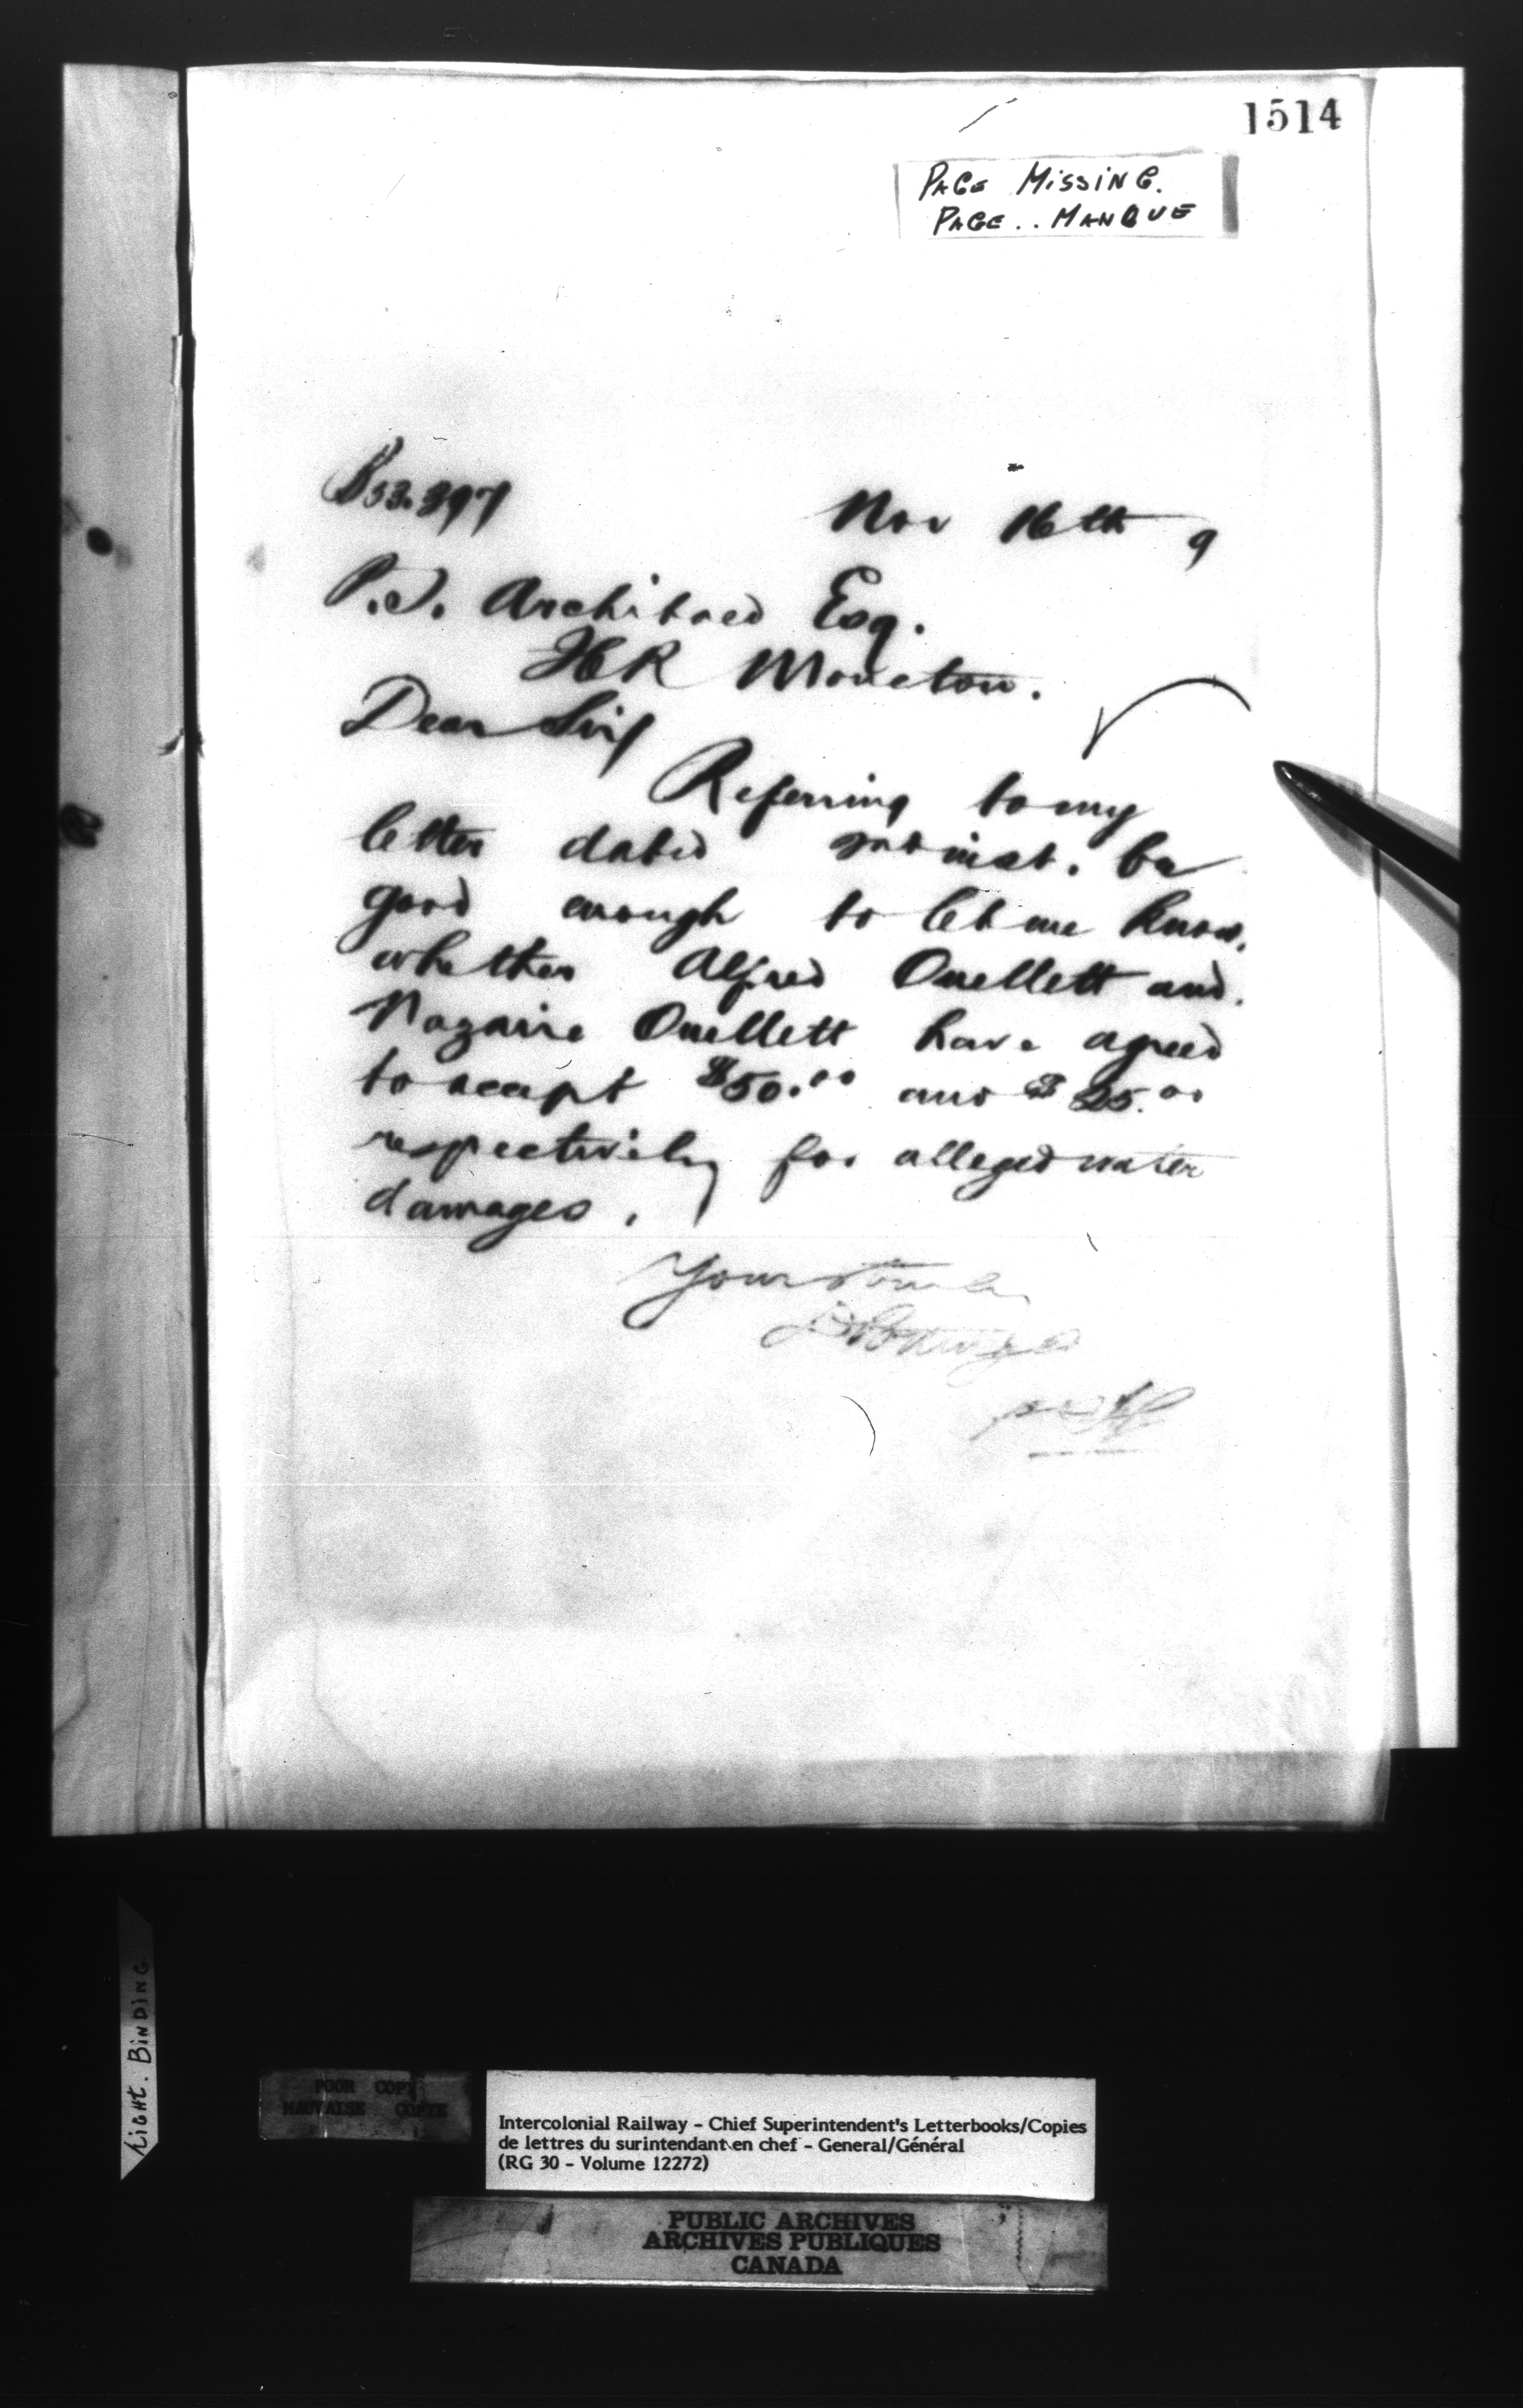 1514
PAGE MISSING.
PAGE.. MANQUE
Nov 16th 9
P.S. Archibald Esq.
Moncton.
Dear Sir/
Referring to my
letter dated inst. be
good enough to let me know,
whether Alfred Ouellett and.
Nazaire Ouellett have agreed
to accept $50.00 and $25.00
respectively for alleged water
damages.
Yours truly
LIGHT. BINDING.
POOR COPY
MAUVAISE COPIE
Intercolonial Railway - Chief Superintendent's Letterbooks/Copies
de lettres du surintendant en chef - General/Général
(RG 30 - Volume 12272)
PUBLIC ARCHIVES
ARCHIVES PUBLIQUES
CANADA